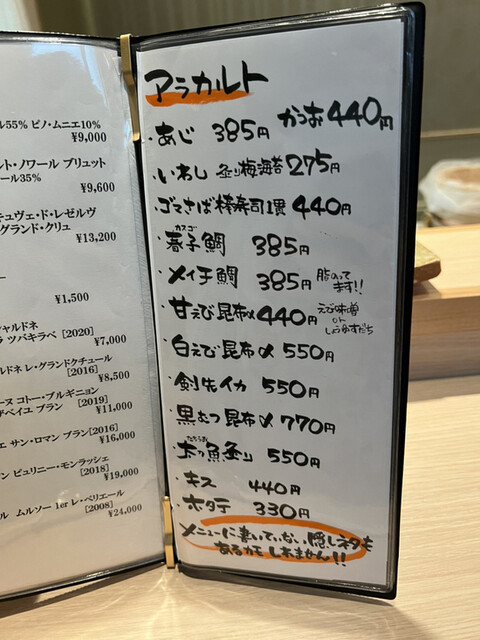 ル55% ピノ・ムニエ10%
¥9,000
ルト・ノワール ブリュット
ール35%
¥9,600
キュヴェ・ド・レゼルヴ
グランド・クリュ
¥13,200
¥1,500
シャルドネ
ラ ツバキラベ [2020]
¥7,000
ルドネ レ・グランドクチュール
[2016]
¥8,500
ーヌ コトー・ブルギニョン
ザペイユ ブラン [2019]
¥11,000
エ サン・ロマン ブラン[2016]
¥16,000
ン ピュリニー・モンラッシェ
[2018]
¥19,000
ル ムルソー 1er レ・ペリエール
[2008]
¥24,000
アラカルト
かつお 440円
・あじ 385円
・いわし 炙り梅海苔 275円
・ゴマさば棒寿司1貫 440円
カスゴ
・春子鯛 385円
・メイチ鯛 385円 脂のってます!!
・甘えび昆布〆 440円 えび味噌
しょうゆすだち
・白えび昆布〆 550円
・剣先イカ 550円
・黒むつ昆布〆 770円
たちうお
・太刀魚炙り 550円
・キス 440円
・ホタテ 330円
メニューに書いていない隠しネタも
あるかもしれません!!